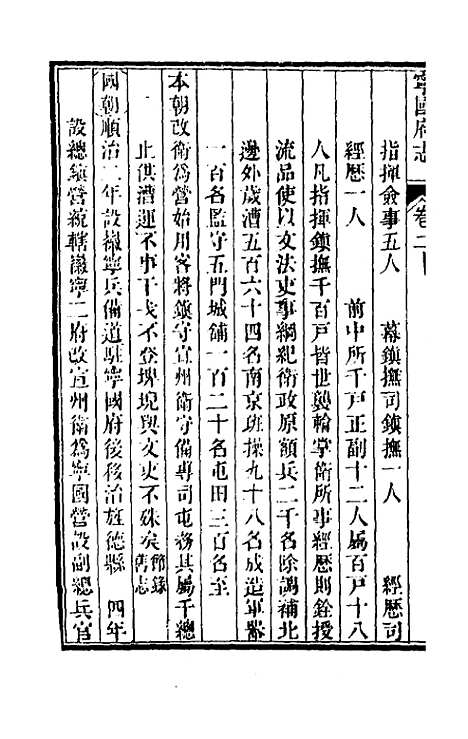 寧國府志 卷二十
指揮僉事五人 幕鎮撫司鎮撫一人 經歷司
經歷一人 前中所千戸正副十二人屬百戸十八
人凡指揮鎮撫千百戸皆世襲輪掌衛所事經歷則銓授
流品使以文法吏事綱紀衛政原額兵二千名除調補北
邊外歲漕五百六十四名南京班操九十八名成造軍器
一百名監守五門城舖一百二十名屯田三百名至
本朝改衛為營始用客將鎮守宣州衛守備專司屯務其屬千總
止供漕運不事干戈不登埤堄與文吏不殊矣 節錄舊志
國朝順治二年設徽寧兵備道駐寧國府後移治旌德縣 四年
設總鎮營統轄徽寧二府改宣州衛為寧國營設副總兵官